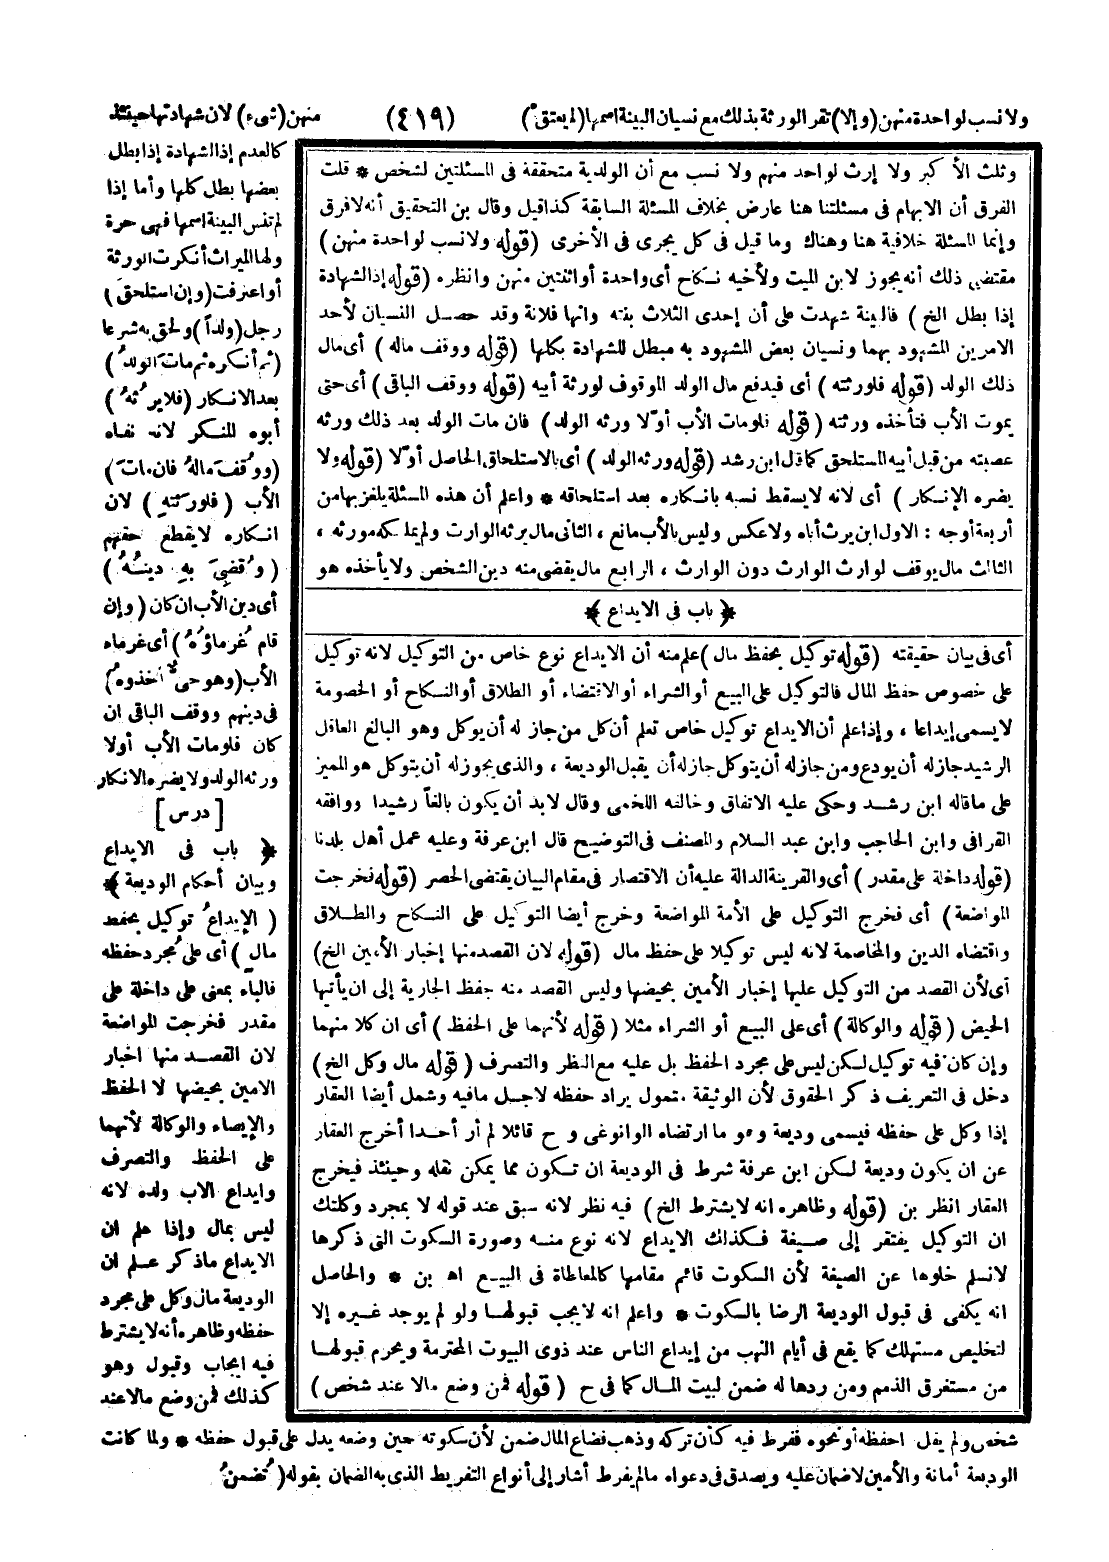 ولا نسب لواحدة منهن (وإلا) تقر الورثة بذلك مع نسيان البينة اسمها (لم يعتق) (٤١٩) منهن (شىء) لان شهادتها حينئذ
كالعدم إذا الشهادة إذا بطل
بعضها بطل كلها وأما إذا
لم تنس البينة اسمها فهى حرة
ولها الميراث أنكرت الورثة
أو اعترفت (وإن استلحق)
رجل (ولداً) ولحق به شرعا
(ثم أنكره ثم مات الولدُ)
بعد الانكار (فلا يرثُهُ)
أبوه المنكر لانه نفاه
(ووُقفَ مالهُ فان مات)
الأب (فلورثتهِ) لان
انكاره لا يقطع حقهم
(وقُضِىَ بهِ دينُهُ)
أى دين الأب ان كان (وإن
قام غُرماؤُهُ) أى غرماء
الأب (وهو حى أخذوهُ)
فى دينهم ووقف الباقى ان
كان فلو مات الأب أولا
ورثه الولد ولا يضره الانكار
[درس]
﴿ باب فى الايداع
وبيان أحكام الوديعة ﴾
(الإيداعُ توكيل بحفظ
مالٍ) أى على مُجرد حفظه
فالباء بمعنى على داخلة على
مقدر فخرجت المواضعة
لان القصد منها اخبار
الامين بحيضها لا الحفظ
والإيصاء والوكالة لأنهما
على الحفظ والتصرف
وايداع الاب ولده لانه
ليس بمال وإذا علم ان
الايداع ماذكر علم ان
الوديعة مال وكل على مجرد
حفظه وظاهره أنه لا يشترط
فيه ايجاب وقبول وهو
كذلك فمن وضع مالا عند
وثلث الأكبر ولا إرث لواحد منهم ولا نسب مع أن الولدية متحققة فى المسئلتين لشخص * قلت
الفرق أن الابهام فى مسئلتنا هنا عارض بخلاف المسئلة السابقة كذا قيل وقال بن التحقيق أنه لا فرق
وإنما المسئلة خلافية هنا وهناك وما قيل فى كل يجرى فى الأخرى (قوله ولا نسب لواحدة منهن)
مقتضى ذلك أنه يجوز لابن الميت ولأخيه نكاح أى واحدة أو اثنتين منهن وانظره (قوله إذ الشهادة
إذا بطل الخ) فالبينة شهدت على أن إحدى الثلاث بنته وانها فلانة وقد حصل النسيان لأحد
الامرين المشهود بهما ونسيان بعض المشهود به مبطل للشهادة بكلها (قوله ووقف ماله) أى مال
ذلك الولد (قوله فلورثته) أى فيدفع مال الولد الموقوف لورثة أبيه (قوله ووقف الباقى) أى حتى
يموت الأب فتأخذه ورثته (قوله فلو مات الأب أولا ورثه الولد) فان مات الولد بعد ذلك ورثه
عصبته من قبل أبيه المستلحق كما قال ابن رشد (قوله ورثه الولد) أى بالاستلحاق الحاصل أولا (قوله ولا
يضره الإنكار) أى لانه لا يسقط نسبه بانكاره بعد استلحاقه * واعلم أن هذه المسئلة يلغز بها من
أربعة أوجه : الاول ابن يرث أباه ولا عكس وليس بالأب مانع ، الثانى مال يرثه الوارث ولم يملكه مورثه ،
الثالث مال يوقف لوارث الوارث دون الوارث ، الرابع مال يقضى منه دين الشخص ولا يأخذه هو
﴿ باب فى الايداع ﴾
أى فى بيان حقيقته (قوله توكيل بحفظ مال) علم منه أن الايداع نوع خاص من التوكيل لانه توكيل
على خصوص حفظ المال فالتوكيل على البيع أو الشراء أو الاقتضاء أو الطلاق أو النكاح أو الخصومة
لا يسمى إيداعا ، وإذا علم أن الايداع توكيل خاص تعلم أن كل من جاز له أن يوكل وهو البالغ العاقل
الرشيد جاز له أن يودع ومن جاز له أن يتوكل جاز له أن يقبل الوديعة ، والذى يجوز له أن يتوكل هو المميز
على ما قاله ابن رشد وحكى عليه الاتفاق وخالفه اللخمى وقال لابد أن يكون بالغاً رشيدا ووافقه
القرافى وابن الحاجب وابن عبد السلام والمصنف فى التوضيح قال ابن عرفة وعليه عمل أهل بلدنا
(قوله داخلة على مقدر) أى والقرينة الدالة عليه أن الاقتصار فى مقام البيان يقتضى الحصر (قوله فخرجت
المواضعة) أى فخرج التوكيل على الأمة المواضعة وخرج أيضا التوكيل على النكاح والطلاق
واقتضاء الدين والمخاصمة لانه ليس توكيلا على حفظ مال (قوله لان القصد منها إخبار الأمين الخ)
أى لأن القصد من التوكيل عليها إخبار الأمين بحيضها وليس القصد منه حفظ الجارية إلى ان يأتيها
الحيض (قوله والوكالة) أى على البيع أو الشراء مثلا (قوله لأنهما على الحفظ) أى ان كلا منهما
وإن كان فيه توكيل لكن ليس على مجرد الحفظ بل عليه مع النظر والتصرف (قوله مال وكل الخ)
دخل فى التعريف ذكر الحقوق لأن الوثيقة متمول يراد حفظه لاجل مافيه وشمل أيضا العقار
إذا وكل على حفظه فيسمى وديعة وهو ما ارتضاه الوانوغى و ح قائلا لم أر أحدا أخرج العقار
عن ان يكون وديعة لكن ابن عرفة شرط فى الوديعة ان تكون مما يمكن نقله وحينئذ فيخرج
العقار انظر بن (قوله وظاهره انه لا يشترط الخ) فيه نظر لانه سبق عند قوله لا بمجرد وكلتك
ان التوكيل يفتقر إلى صيغة فكذلك الايداع لانه نوع منه وصورة السكوت التى ذكرها
لا نسلم خلوها عن الصيغة لأن السكوت قائم مقامها كالمعاطاة فى البيع اه بن * والحاصل
انه يكفى فى قبول الوديعة الرضا بالسكوت * واعلم انه لا يجب قبولها ولو لم يوجد غيره إلا
لتخليص مستهلك كما يقع فى أيام النهب من إيداع الناس عند ذوى البيوت المحترمة ويحرم قبولها
من مستغرق الذمم ومن ردها له ضمن لبيت المال كما فى ح (قوله فمن وضع مالا عند شخص)
شخص ولم يقل احفظه أو نحوه ففرط فيه كأن تركه وذهب فضاع المال ضمن لأن سكوته حين وضعه يدل على قبول حفظه * ولما كانت
الوديعة أمانة والأمين لا ضمان عليه ويصدق فى دعواه مالم يفرط أشار إلى أنواع التفريط الذى به الضمان بقوله (تُضمنُ